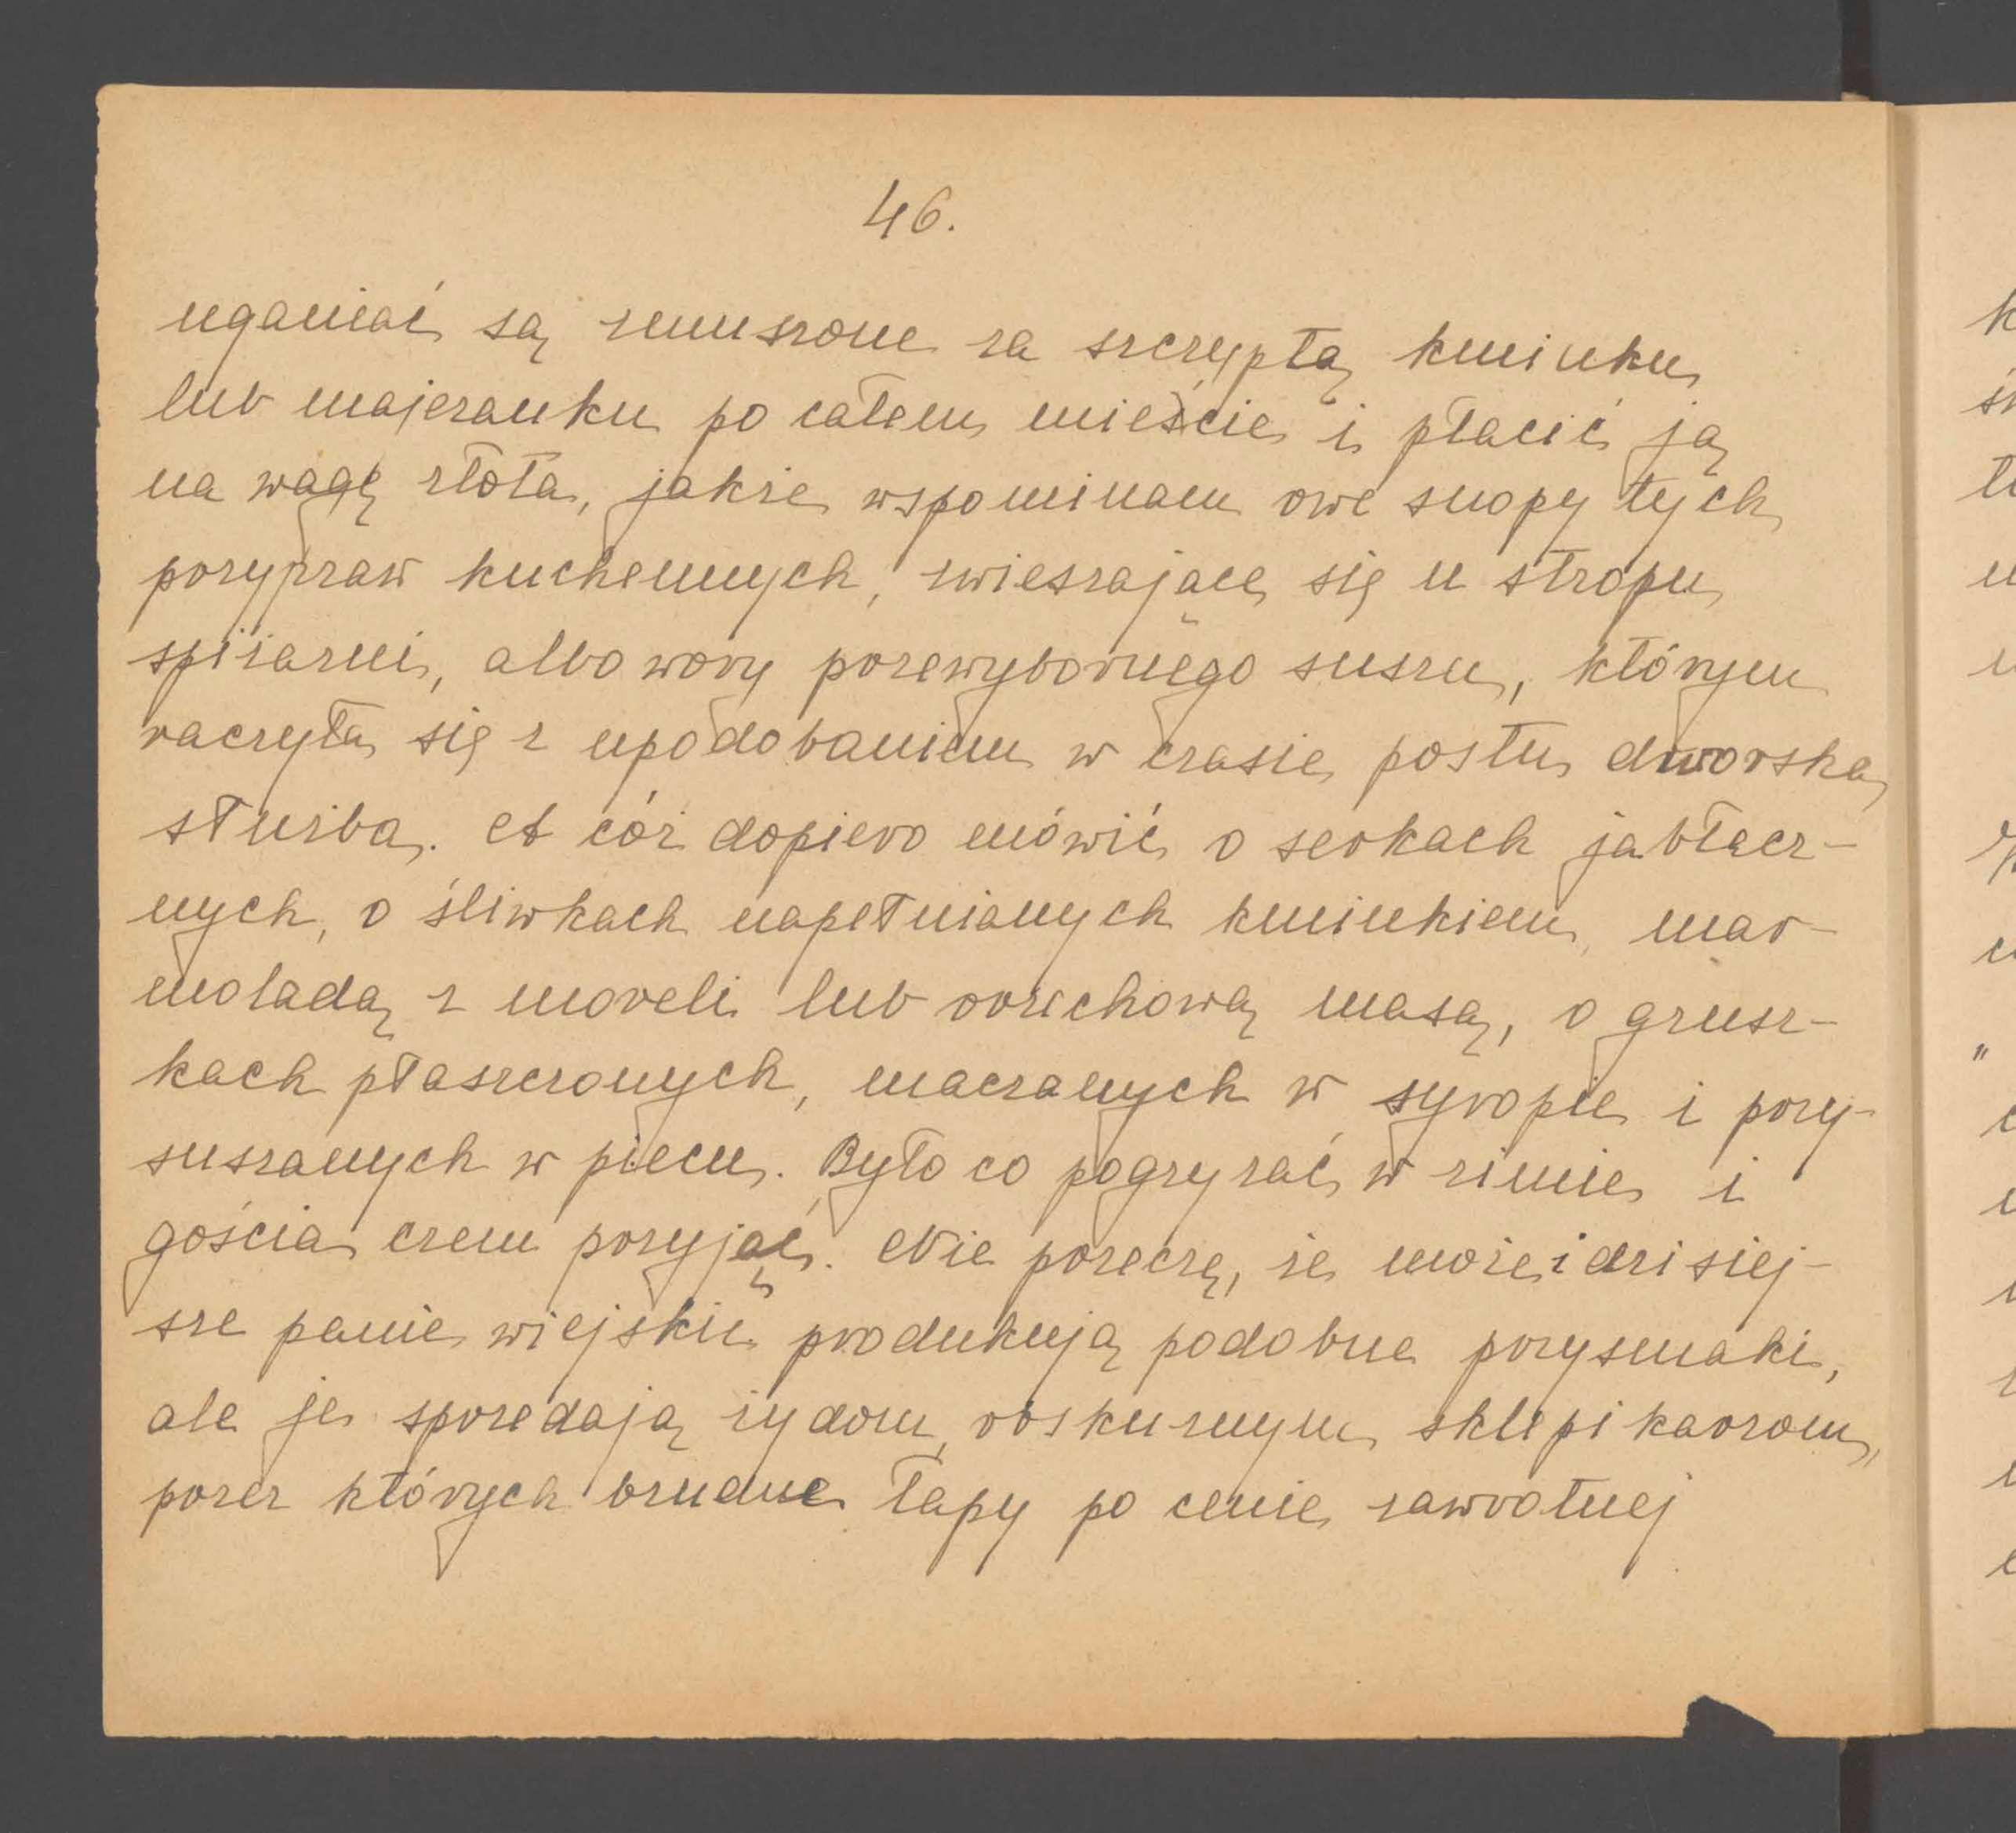 46.
uganiać są zmuszone za szczyptą kminku
lub majeranku po całem mieście i płacić ją
na wagę złota, jakże wspominam owe snopy tych
przypraw kuchennych, zwieszające się u stropu
spiżarni, albo wory przewybornego suszu, którym
raczyła się z upodobaniem w czasie postu dworska
służba. A cóż dopiero mówić o serkach jabłecz-
nych, o śliwkach napełnianych kminkiem, mar-
moladą z moreli lub orzechową masą, o grusz-
kach płaszczonych, maczanych w syropie i przy-
suszanych w piecu. Było co pogryzać w zimie i
gościa czem przyjąć. Nie przeczę, że może i dzisiej-
sze panie wiejskie produkują podobne przysmaki,
ale je sprzedają żydom, obskurnym sklepikarzom,
przez których brudne łapy po cenie zawrotnej